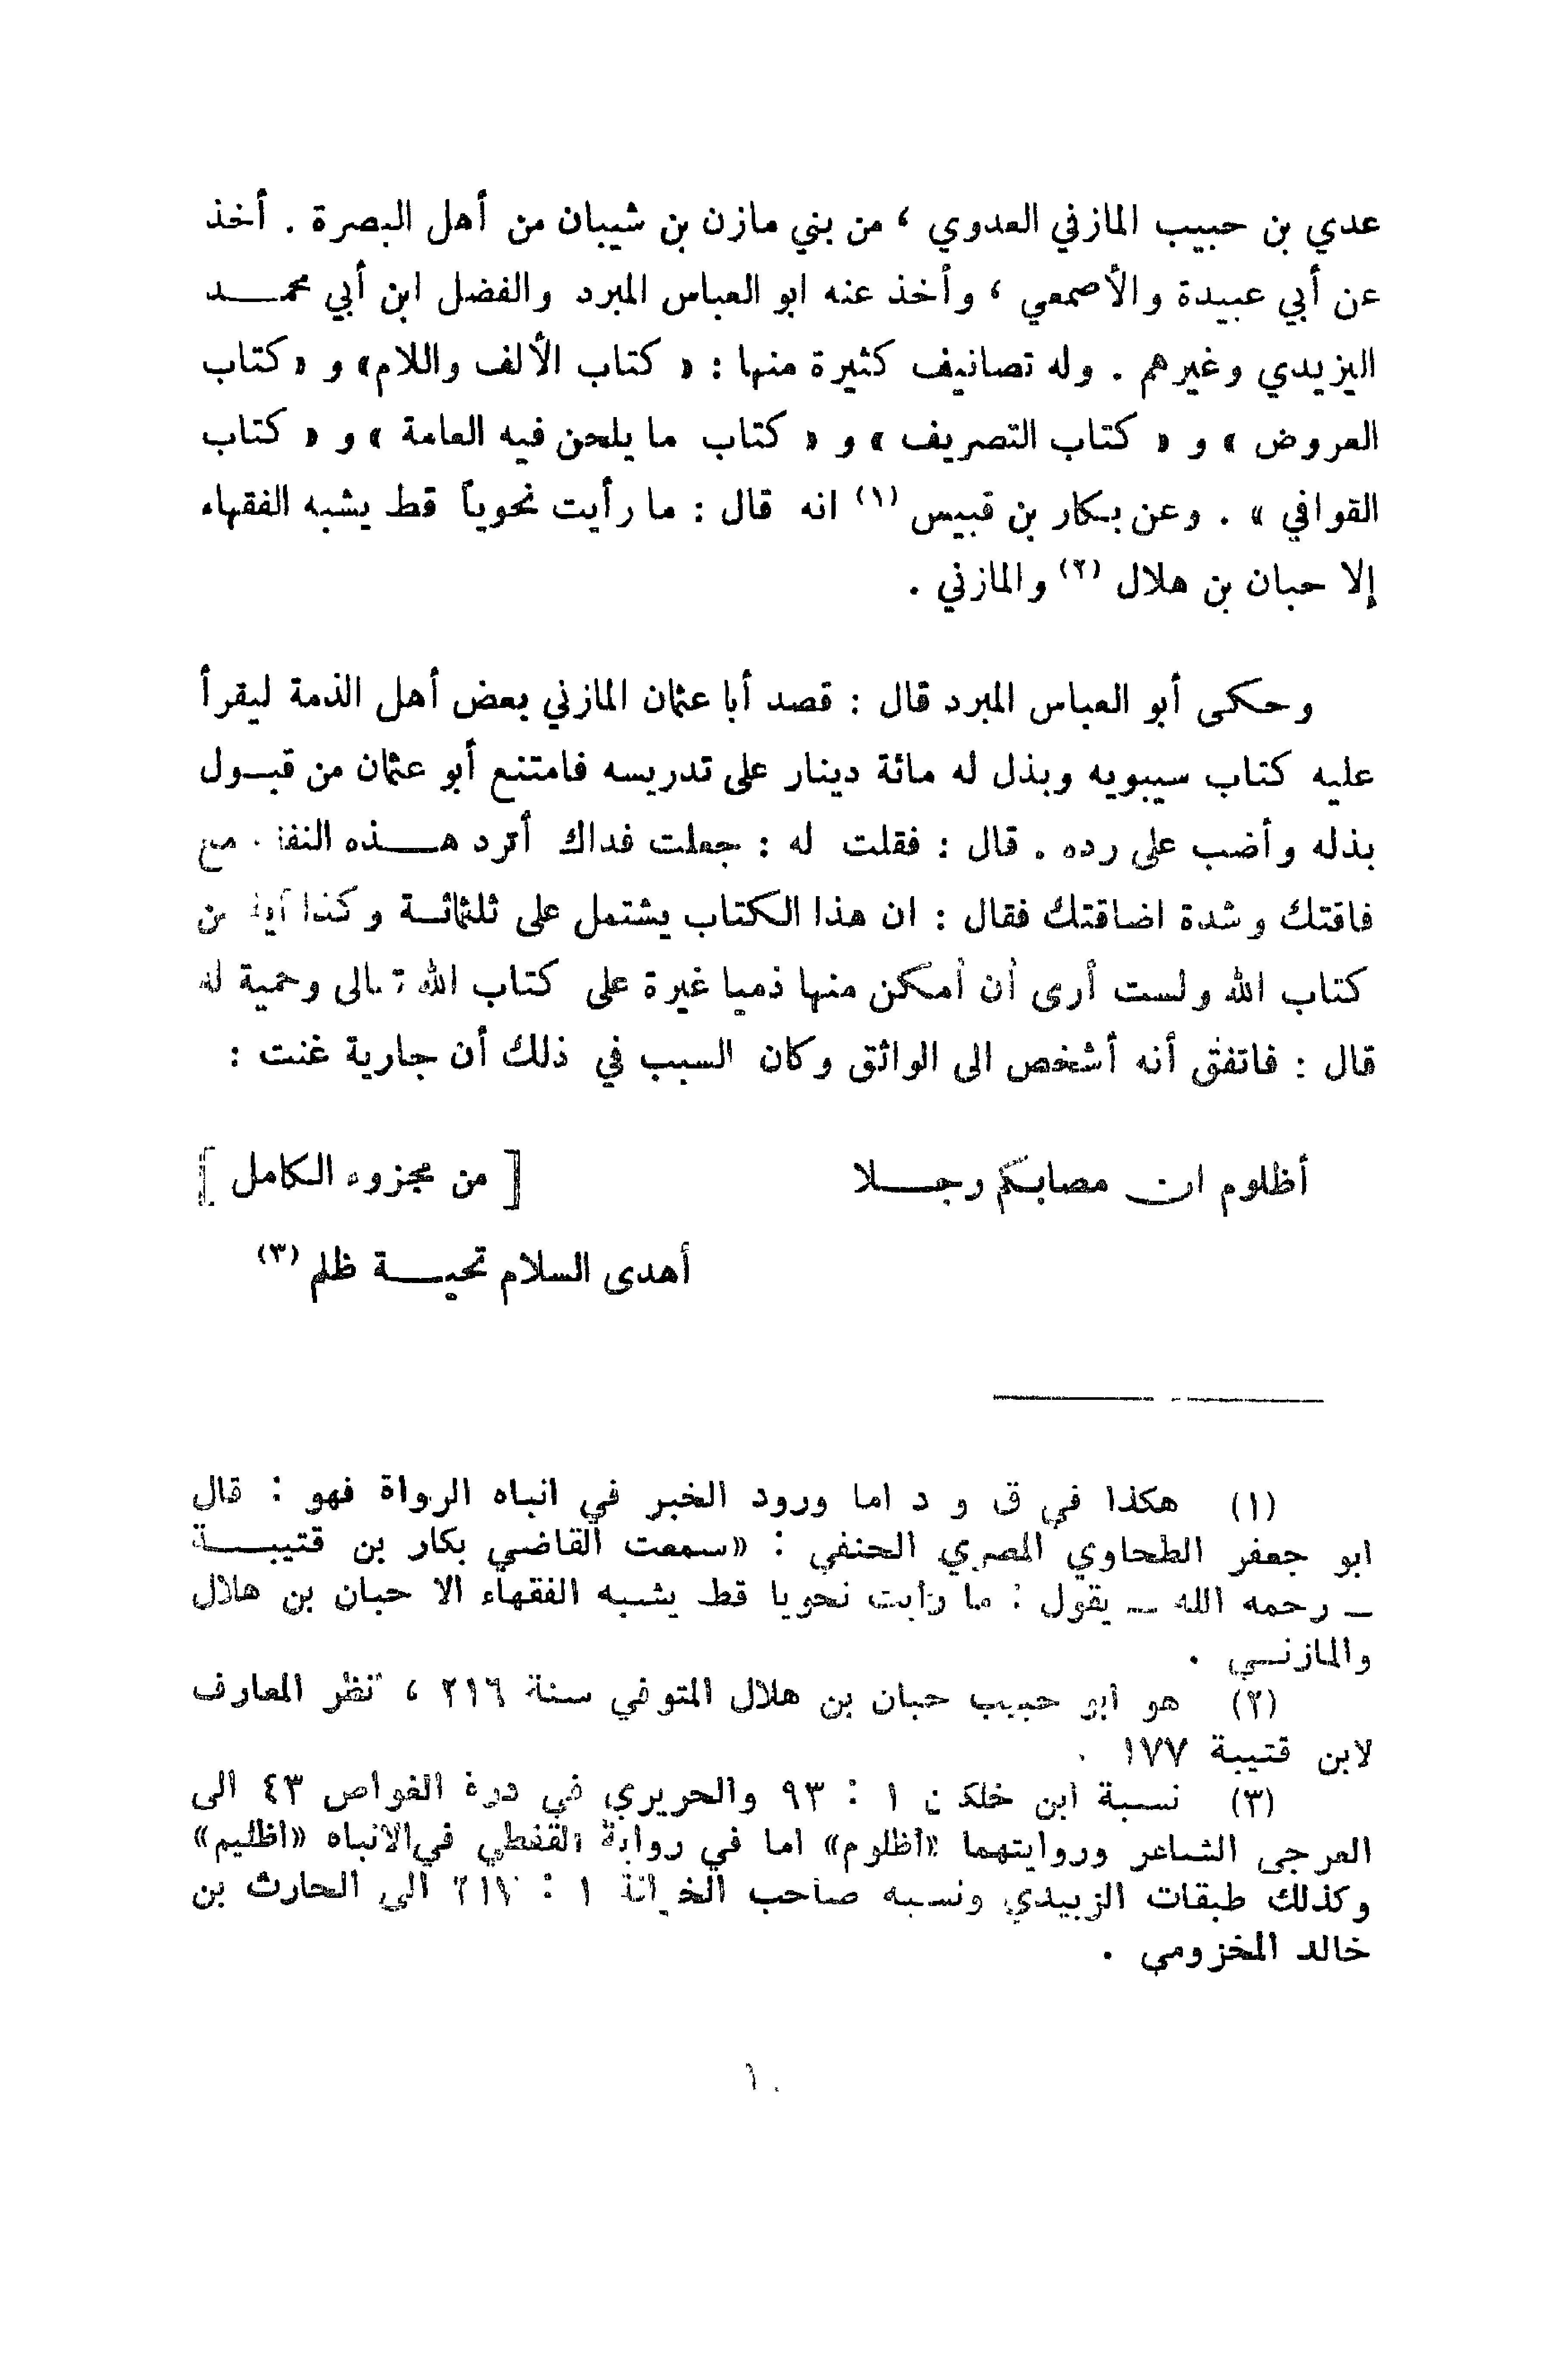 عدي بن حبيب المازني العدوي ، من بني مازن بن شيبان من أهل البصرة . أخذ
عن أبي عبيدة والأصمعي ، وأخذ عنه ابو العباس المبرد والفضل ابن أبي محمد
اليزيدي وغيرهم . وله تصانيف كثيرة منها : « كتاب الألف واللام» و «كتاب
العروض » و « كتاب التصريف » و « كتاب ما يلحن فيه العامة » و « كتاب
القوافي » . وعن بكار بن قبيس (١) انه قال : ما رأيت نحوياً قط يشبه الفقهاء
إلا حبان بن هلال (٢) والمازني .
وحكى أبو العباس المبرد قال : قصد أبا عثمان المازني بعض أهل الذمة ليقرأ
عليه كتاب سيبويه وبذل له مائة دينار على تدريسه فامتنع أبو عثمان من قبول
بذله وأضب على رده . قال : فقلت له : جعلت فداك أترد هذه مع
فاقتك وشدة اضاقتك فقال : ان هذا الكتاب يشتمل على ثلثمائة وكذا آية من
كتاب الله ولست أرى أن أمكن منها ذميا غيرة على كتاب الله تعالى وحمية له
قال : فاتفق أنه أشخص الى الواثق وكان السبب في ذلك أن جارية غنت :
أظلوم ان مصابكم رجلا [ من مجزوء الكامل ]
أهدى السلام تحية ظلم (٣)
(١) هكذا في ق و د اما ورود الخبر في انباه الرواة فهو : قال
ابو جعفر الطحاوي المصري الحنفي : «سمعت القاضي بكار بن قتيبة
ـ رحمه الله ـ يقول : ما رأيت نحويا قط يشبه الفقهاء الا حبان بن هلال
والمازني .
(٢) هو أبو حبيب حبان بن هلال المتوفي سنة ٢١٦ ، انظر المعارف
لابن قتيبة ١٧٧ .
(٣) نسبة ابن خلكان ١ : ٩٣ والحريري في درة الغواص ٤٣ الى
العرجي الشاعر وروايتهما «أظلوم» اما في رواية القفطي في الانباه «اظليم»
وكذلك طبقات الزبيدي ونسبه صاحب الخزانة ١ : ٢١٧ الى الحارث بن
خالد المخزومي .
١٠